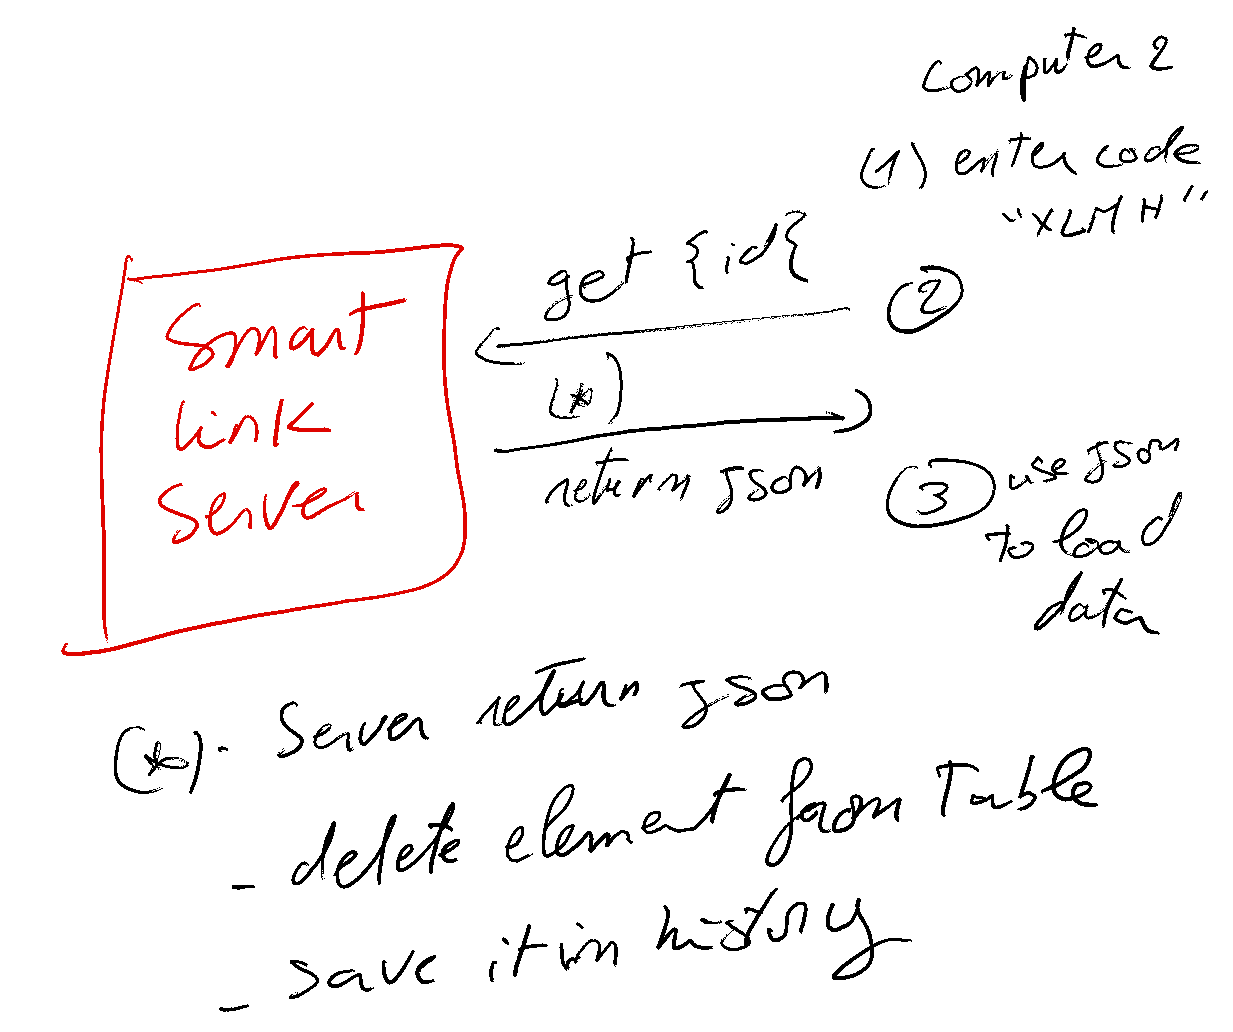 Computer 2
(1) enter code
"XLMH"
get {id{
(2)
Smart
link
Server
(*)
return json
(3) use json
to load
data
(*)- Server return json
- delete element from Table
- save it in history